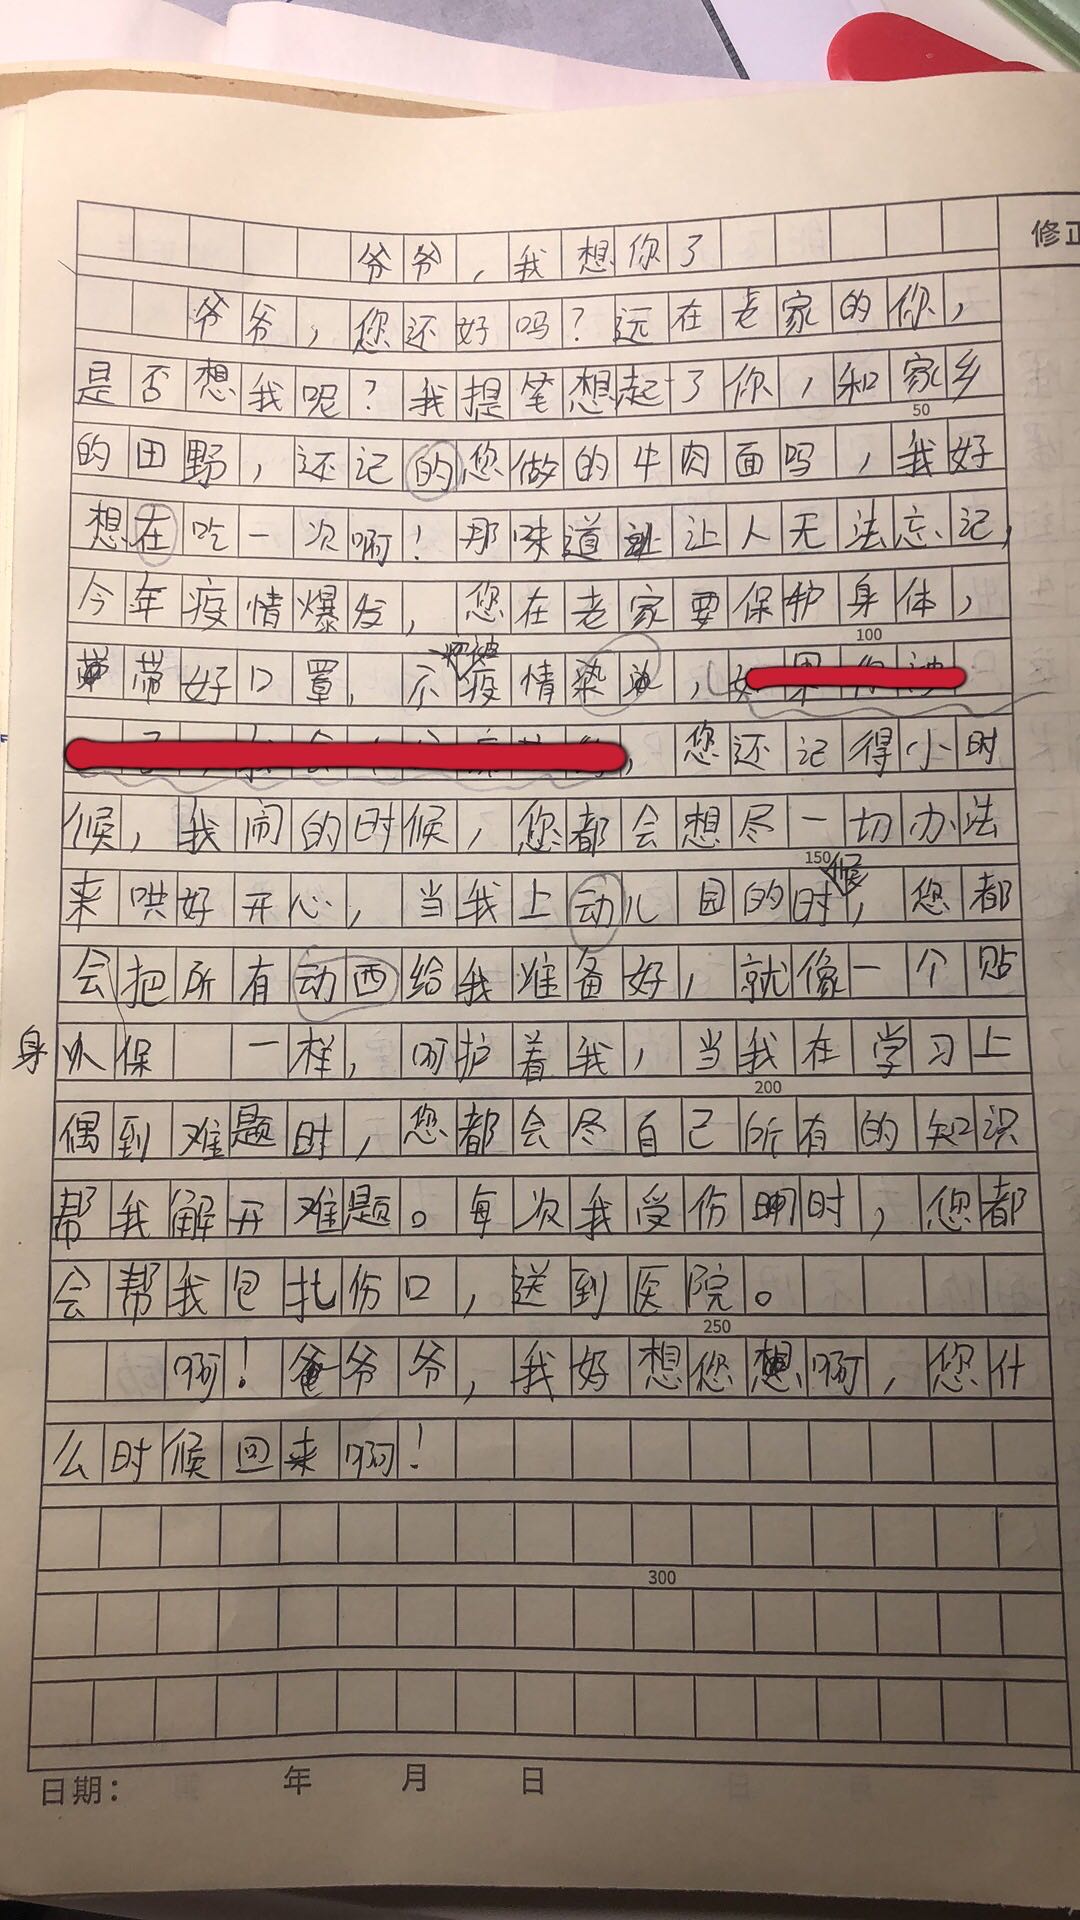 修正
爷爷，我想你了
爷爷，您还好吗？远在老家的你，
是否想我呢？我提笔想起了你，和家乡
50
的田野，还记的您做的牛肉面吗，我好
想在吃一次啊！那味道让人无法忘记，
今年疫情爆发，您在老家要保护身体，
100
带好口罩，不要被疫情染，
，您还记得小时
候，我闹的时候，您都会想尽一切办法
150
来哄好开心，当我上动儿园的时候，您都
会把所有动西给我准备好，就像一个贴
身保一样，呵护着我，当我在学习上
200
偶到难题时，您都会尽自己所有的知识
帮我解开难题。每次我受伤时，您都
会帮我包扎伤口，送到医院。
250
啊！爷爷，我好想您啊，您什
么时候回来啊！
300
日期： 年 月 日